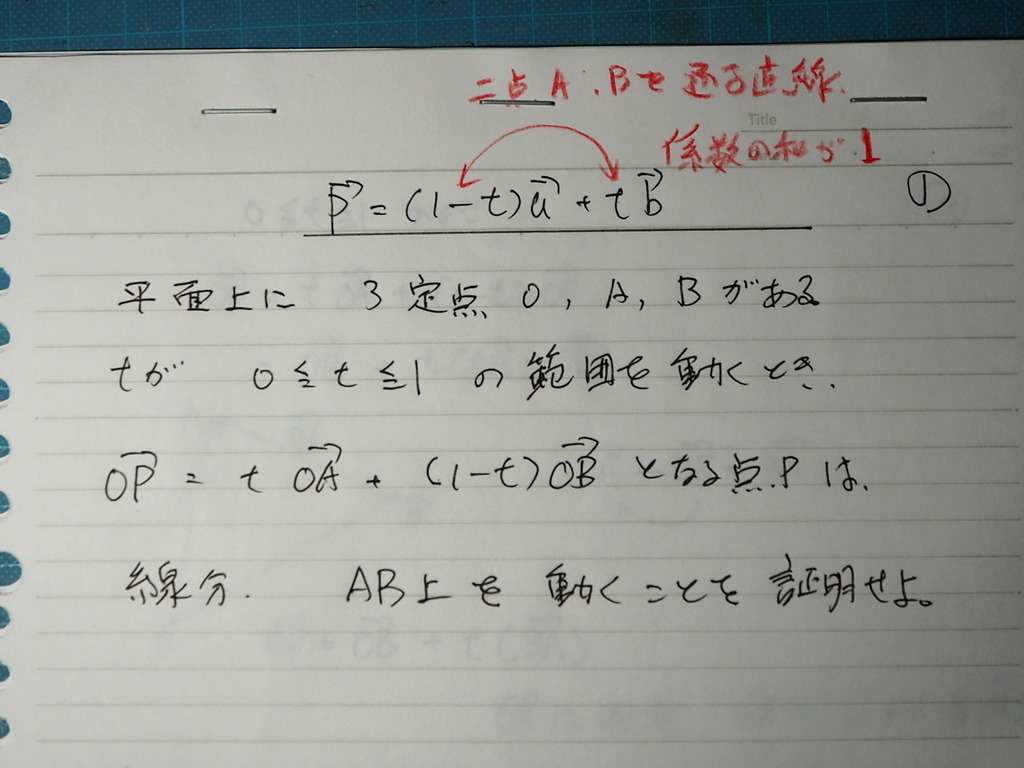 二点A,Bを通る直線.
Title
係数の和が1
p⃗ = (1-t)a⃗ + t b⃗ ①
平面上に 3定点 O, A, B がある
tが 0≦t≦1 の範囲を動くとき、
OP⃗ = t OA⃗ + (1-t)OB⃗ となる点Pは、
線分. AB上を動くことを証明せよ。